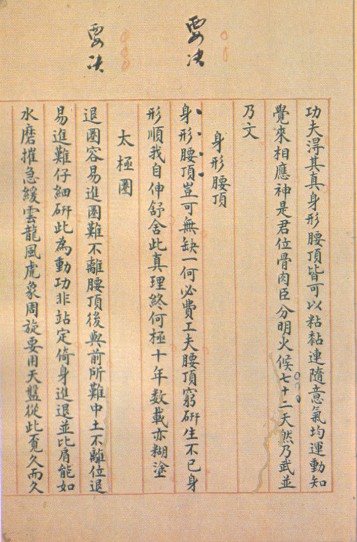 要决
要决
功夫淂其真身形腰頂皆可以粘黏連隨意氣均運動知
覺來相應神是君位骨肉臣分明火候七十二天然乃武並
乃文
身形腰頂
身形腰頂豈可無缺一何必費工夫腰頂窮研生不已身
形順我自伸舒舍此真理終何極十年数載亦糊塗
太極圈
退圈容易進圈難不離腰頂後與前所難中土不離位退
易進難仔細研此為動功非站定倚身進退並比肩能如
水磨摧急緩雲龍風虎象周旋要用天盤從此覓久而久